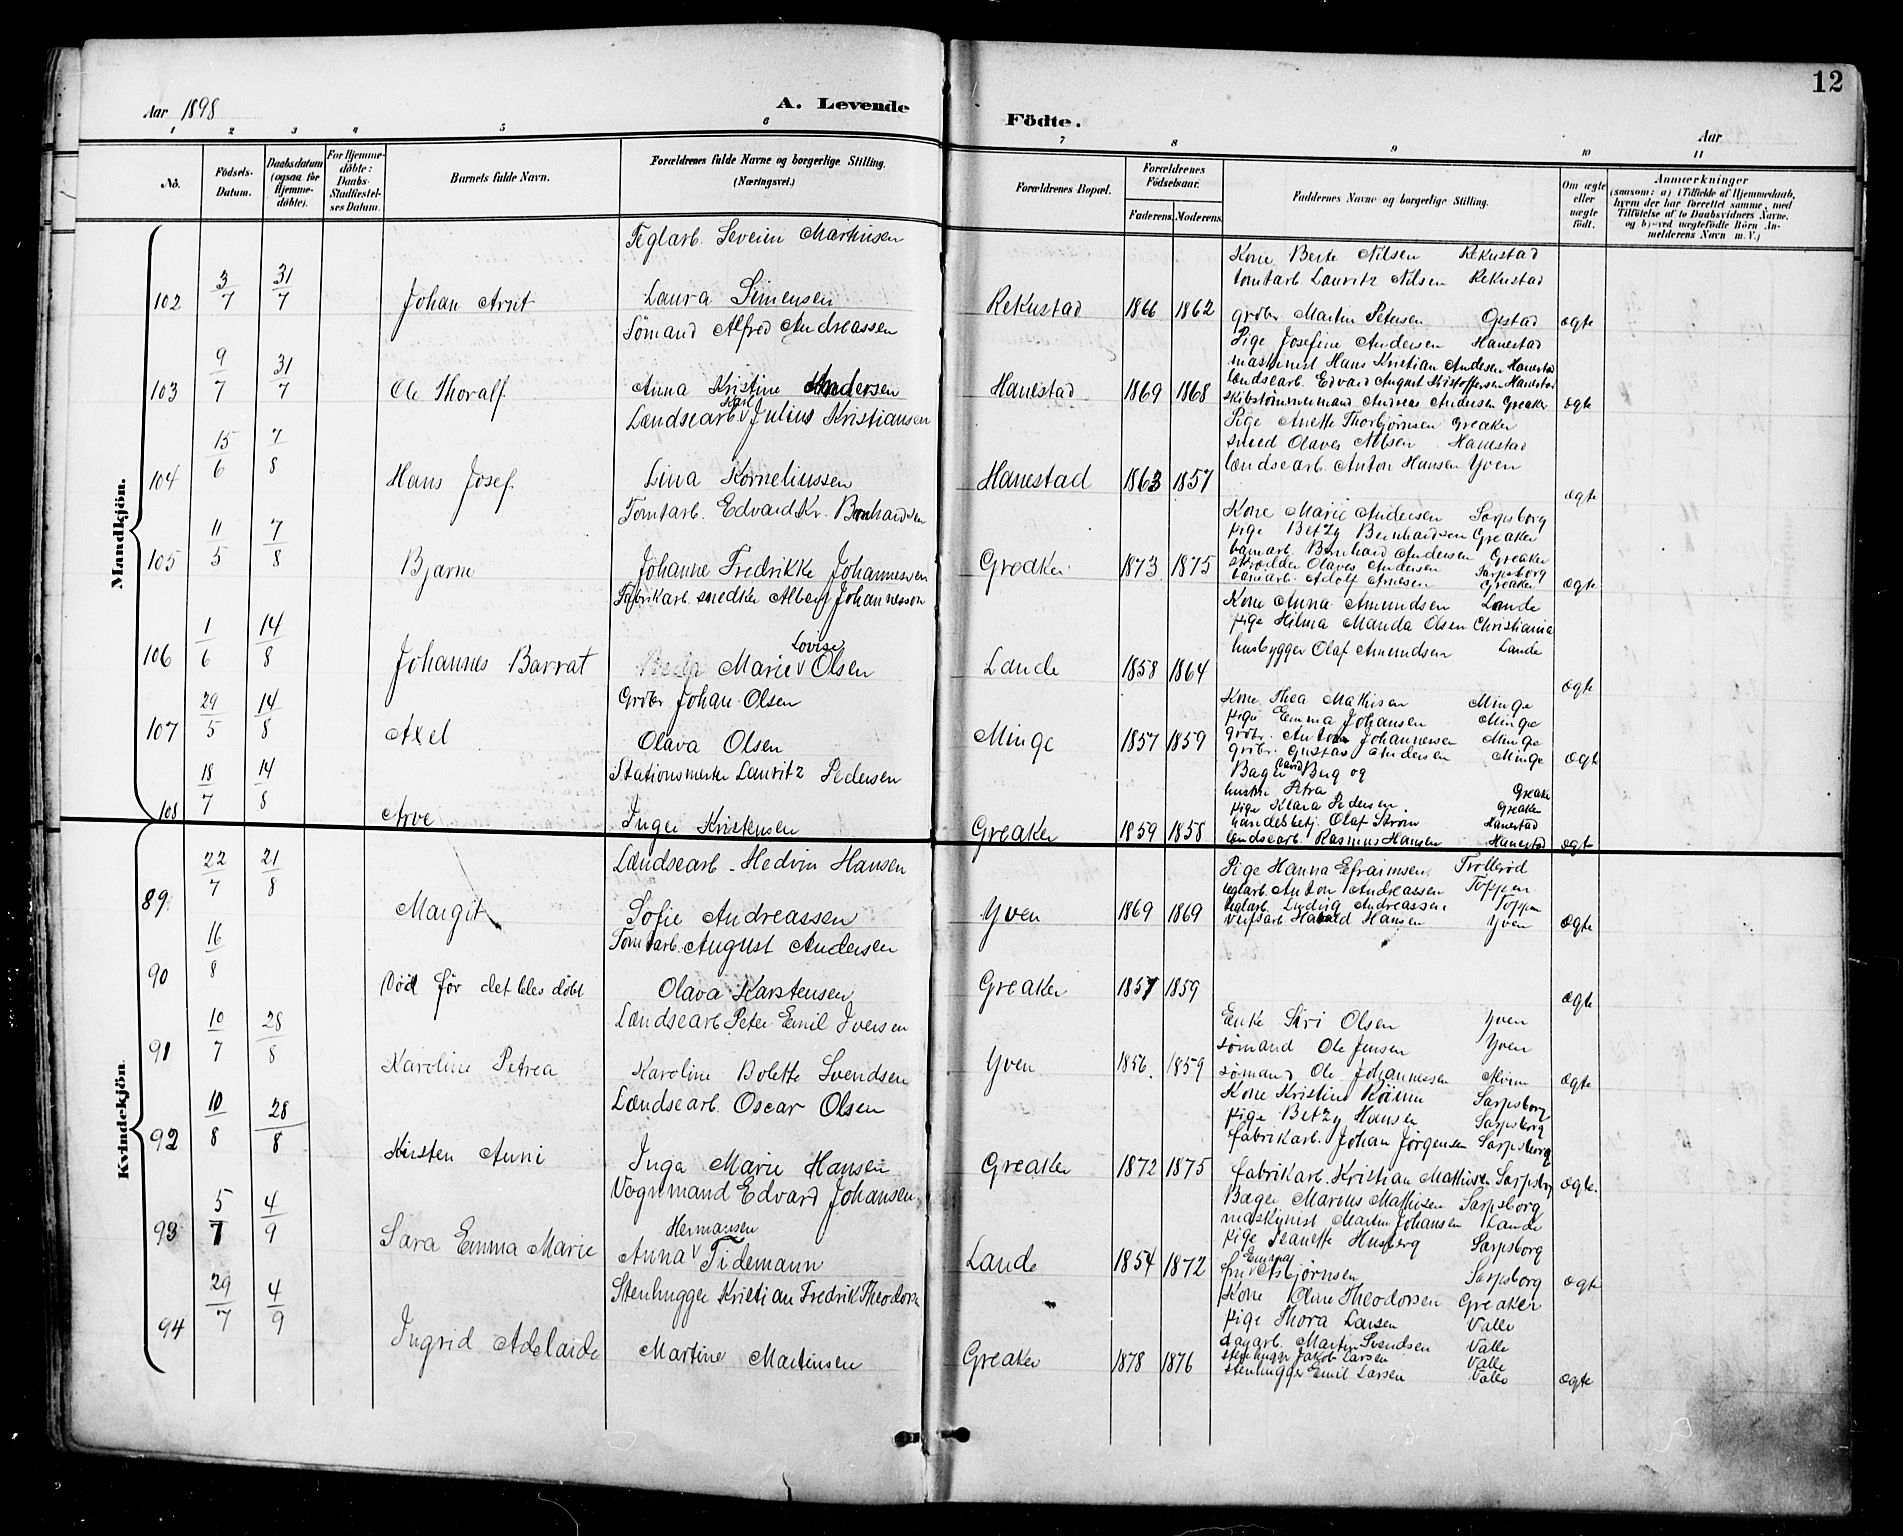 12
Aar 1898
A. Levende
Födte.
Aar
1 2 3 4 5 6 7 8 9 10 11
No.
Födsels-
Datum.
Daabsdatum
(ogsaa for
Hjemme-
döbte).
For Hjemme-
döbte:
Daabs-
Stadfæstel-
ses Datum.
Barnets fulde Navn.
Forældrenes fulde Navne og borgerlige Stilling.
(Næringsvei.)
Forældrenes Bopæl.
Forældrenes
Födselsaar.
Faderens. Moderens.
Faddernes Navne og borgerlige Stilling.
Om ægte
eller
uægte
födt.
Anmærkninger
(saasom: a) i Tilfælde af Hjemmedaab,
hvem der har forrettet samme, med
Tilföielse af to Daabsvidners Navne,
og b) ved uægtefödte Börn An-
melderens Navn m. V.)
Mandkjön.
Teglarb. Severin Martinsen
102 3/7 31/7 Johan Arnt Laura Simensen Rekustad 1866 1862
Kone Berte Nilsen Rekustad
tomtarb Lauritz Nilsen Rekustad
grdbr Martin Petersen Opstad ægte
Sömand Alfred Andreassen
103 9/7 31/7 Ole Thoralf Anna Kristine Andersen Hanestad 1869 1868
Pige Josefine Andersen Hanestad
maskinist Hans Kristian Andersen Hanestad
Lændsearb. Edvard August Kristoffersen Hanestad
skibstømmermand Andreas Andersen Greaker ægte
Lændsearb Karl Julius Kristiansen
104 15/6 7/8 Hans Josef Lina Korneliussen Hanestad 1863 1857
Pige Anette Thorbjørnsen Greaker
smed Olaves Nilsen Hanestad
Lændsearb. Anton Hansen Yven
ægte
Tomtarb. Edvard Kr. Bernhardsen
105 11/5 7/8 Bjarne Johanne Fredrikke Johannessen Greaker 1873 1875
Kone Marie Andersen Sarpsborg
pige Betzy Bernhardsen Greaker
Bernhard Andersen Greaker
skrædder Olaves Andersen Sarpsborg
Adolf Arnesen Greaker ægte
Fabrikarb. snedker Albert Johannesson
106 1/6 14/8 Johannes Barrat Marie Lovise Olsen Lande 1858 1864
Kone Anna Amundsen Lande
pige Hilma Manda Olsen Christiania
husbygger Olaf Amundsen Lande
ægte
Grdbr Johan Olsen
107 29/5 14/8 Axel Olava Olsen Minge 1857 1859
Kone Thea Mathisen Minge
pige Emma Johansen Minge
grdbr. Anton Johannesen Minge
grdbr. Gustav Andersen Minge ægte
Stationsmester Lauritz Pedersen
108 18/7 14/8 Arve Inger Kristensen Greaker 1859 1858
Bager Berg og
hustru Petra Greaker
pige Klara Pedersen Greaker
handelsbetj. Olaf Strøm Hanestad
lændsearb. Rasmus Hansen Hanestad ægte
Kvindekjön.
Lændsearb. Hedvin Hansen
89 22/7 21/8 Margit Sofie Andreassen Yven 1869 1869
Pige Hanna Efraimsen Trollerød
teglarb. Anton Andreassen Toppen
teglarb. Ludvig Andreassen Toppen
verftsarb Harald Hansen Yven ægte
Tomtarb. August Andersen
90 16/8 Död før det blev døbt Olava Karstensen Greaker 1857 1859 ægte
Lændsearb Peter Emil Iversen
91 10/7 28/8 Karoline Petrea Karoline Bolette Svendsen Yven 1856. 1859
Enke Siri Olsen Yven
sømand Ole Jensen Yven
sømand Ole Johannessen ægte
Lændsearb. Oscar Olsen
92 10/8 28/8 Kirsten Anni Inga Marie Hansen Greaker 1872 1875
Kone Kristine Sarpsborg
pige Betzy Hansen Sarpsborg
fabrikarb. Johan Jørgensen Sarpsborg
fabrikarb. Kristian Mathisen Sarpsborg ægte.
Vognmand Edvard Johansen
93 5/7 4/9 Sara Emma Marie Anna Hermansen Tidemann Lande 1854 1872
Bager Marius Mathisen Sarpsborg
maskinist Martin Johansen Lande
pige Jeanette Husberg Sarpsborg
fru Emma Asbjørnsen Sarpsborg ægte
Stenhugger Kristian Fredrik Theodorsen
94 29/7 4/9 Ingrid Adelaide Martine Martinsen Greaker 1878 1876
Kone Oline Theodorsen Greaker
pige Thora Larsen Valle
dagarb. Martin Svendsen Valle
stenhugger Jakob Larsen Valle
stenhugger Emil Larsen Valle ægte